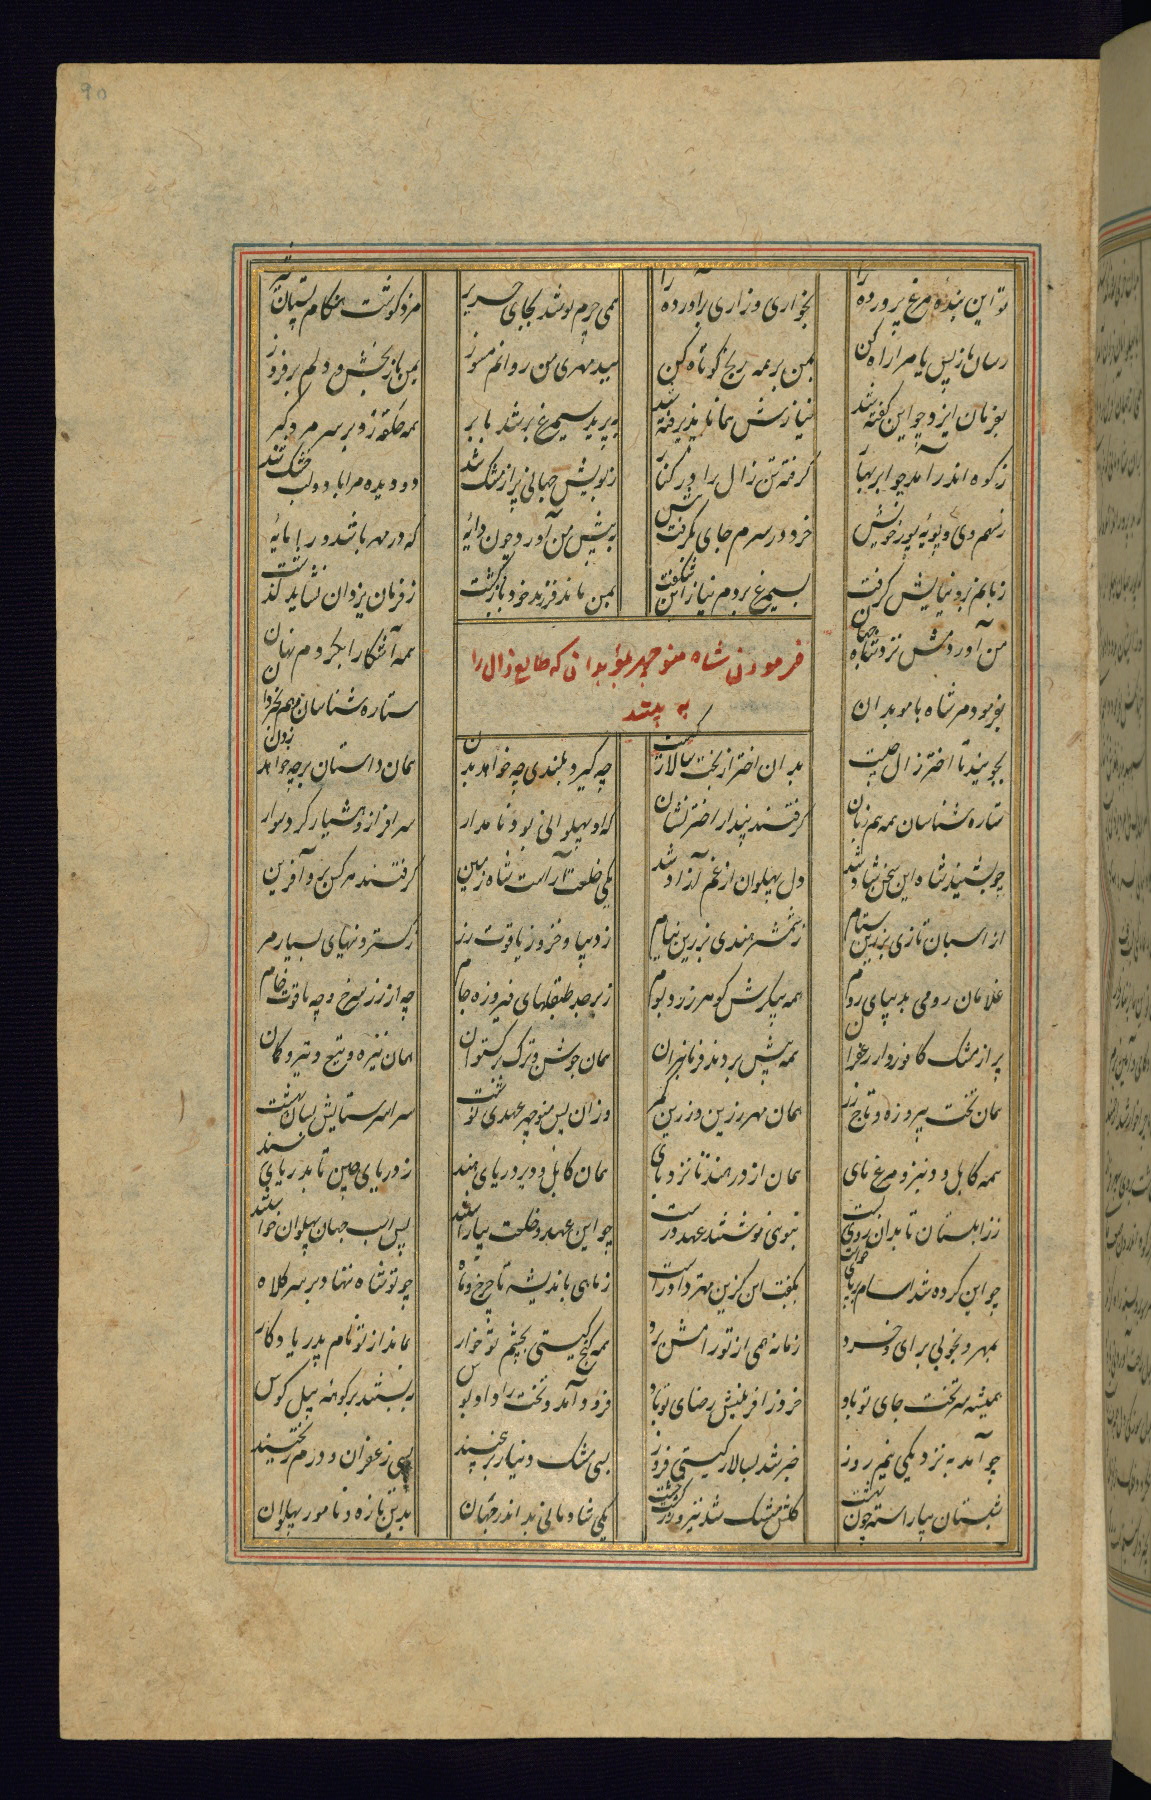 90
تو این بندهٔ مرغ پرورده را بخواری و زاری برآورده را همی چرم پوشد بجای حریر مزد گوشت هنگام پستان شیر
رسان باز پس یا مرا راه کن بمن بر همه رنج کوتاه کن ببد مهری من روانم مسوز بمن باز بخش و دلم برفروز
بفرمان ایزد چو این گفته شد نیازش همانا پذیرفته شد به پرید سیمرغ برشد بابر همه حلقه زد بر سر مرد گبر
ز کوه اندر آمد چو ابر بهار گرفته تن زال را در کنار ز بویش جهانی پر از مشک شد دو دیده مرا با دو لب خشک شد
ز سهم وی و پویهٔ پور خویش خرد در سرم جای نگرفت بیش به پیش من آورد چون دایهٔ که در مهر باشد ورا مایهٔ
زبانم برو نیایش گرفت بسیمرغ بردم نیاز ای شگفت بمن ماند فرزند خود بازگشت ز فرمان یزدان نشاید گذشت
من آوردمش نزد شاه جهان همه آشکارا بکردم نهان
فرمودن شاه منوچهر بمؤبدان که طالع زال را
به بینند
بفرمود مر شاه با موبدان ستاره شناسان و هم بخردان
بجویند تا اختر زال چیست بدان اختر از بخت سالار کیست چه گیرد بلندی چه خواهد بدن همان داستان بر چه خواهد زدن
ستاره شناسان همه هم زبان گرفتند پیدا ز اختر نشان که او پهلوانی بود نامدار سرافراز و هشیار گرد و سوار
چو بشنید شاه این سخن شاد شد دل پهلوان از غم آزاد شد یکی خلعت آراست شاه زمین گرفتند هر کس برو آفرین
از اسبان تازی بزرین ستام ز شمشیر هندی بزرین نیام ز دیبا و خز و ز یاقوت و زر ز گستردنیهای بسیار مر
غلامان رومی بدیبای روم همه پیکرش گوهر زرد بوم زبرجد طبقهای فیروزه جام چه از زر سرخ و چه یاقوت خام
پر از مشک کافور و از زعفران همه پیش بردند فرمانبران همان جوشن و ترک و برگستوان همان نیزه و تیغ و تیر و کمان
همان تخت پیروزه و تاج زر همان مهر زرین و زرین کمر وزان پس منوچهر عهدی نوشت سراسر ستایش بسان بهشت
همه کابل و دنبر و مرغ مای همان از در هند تا نزد همان کابل و دریای هند ز دریای چین تا بدریای سند
ز زابلستان تا بدان روی بست بنوی نوشتند عهد درست چو این عهد و خلعت بیاراستند پس اسب جهان پهلوان خواستند
چو این کرده شد سام برپای خواست بگفت این گزین مهتر داد راست ز ماهی باندیشه تا چرخ و ماه چو تو شاه ننهاد بر سر کلاه
بمهر و بخوبی برای و خرد زمانه همی از تو رامش برد همه گنج گیتی بچشم تو خوار نماند از تو نام پدر یادگار
همیشه سر تخت جای تو باد خرد ز آفرینش رضای تو باد فرود آمد و تخت را داد بوس ببستند بر کوهه پیل کوس
چو آمد به نزدیکی نیم روز خبر شد بسالار گیتی فروز بسی مشک و دینار بر بیختند بسی زعفران و درم ریختند
شبستان بیاراسته چون بهشت گلش مشک شد نیز و زر گشت خشت یکی شادمانی بد اندر جهان بدین تازه و نامور پهلوان